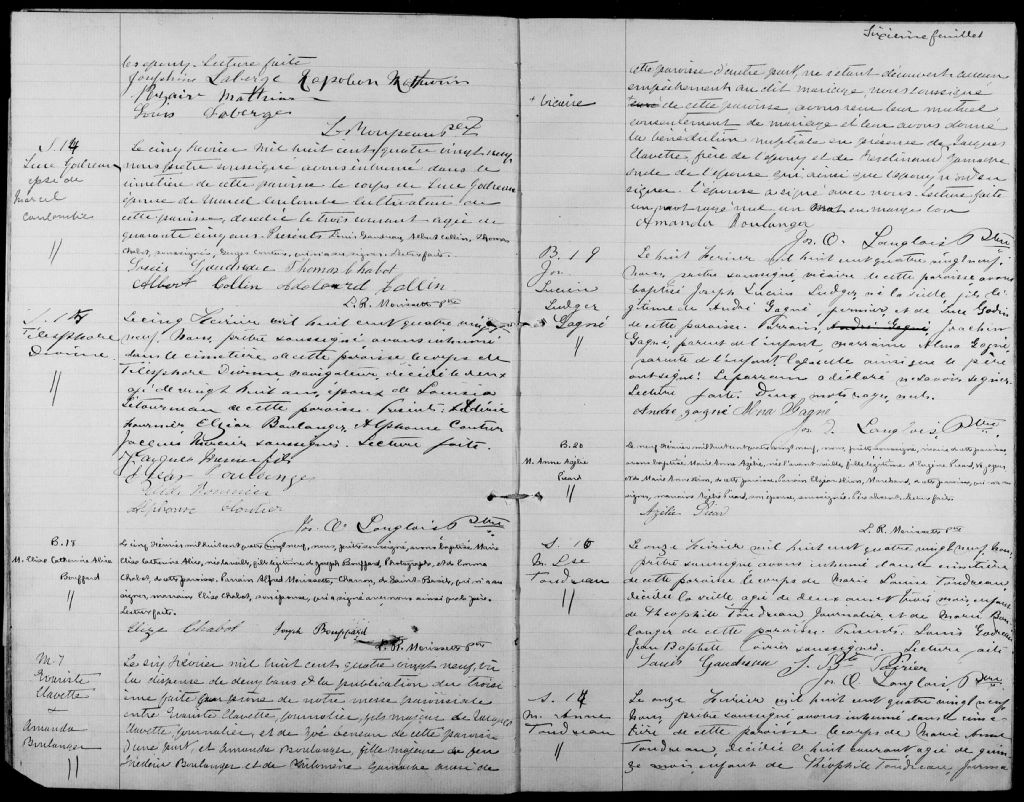 les époux. Lecture faite
Joséphine Laberge Napoléon Mathurin
Louis Laberge
S. 14
Luce Godreau
épse de
Marcel
Coulombe
"
Le cinq février mil huit cent quatre vingt neuf,
nous prêtre soussigné avons inhumé dans le
cimetière de cette paroisse le corps de Luce Godreau
épouse de Marcel Coulombe cultivateur de
cette paroisse, décédée le trois courant agée de
quarante cinq ans. Présents Louis Gaudreau, Albert Collin, Thomas
Chabot, soussignés, Lecture faite.
Louis Gaudreau Thomas Chabot
Albert Collin Edouard Collin
L. R. Morissette Ptre
S. 15
Télesphore
Dionne
"
Le cinq Février mil huit cent quatre vingt
neuf, Nous, prêtre soussigné avons inhumé
dans le cimetière de cette paroisse le corps de
Télesphore Dionne navigateur, décédé le deux
agé de vingt huit ans, époux de Louisia
Létourneau de cette paroisse. Présents
Fournier Elzéar Boulanger, Alphonse Cloutier
Jacques Mercier soussignés. Lecture faite.
Jacques Mercier fils
Elzéar Boulanger
Alphonse Cloutier
Jos. O. Langlois Ptre
B. 18
M. Eliza Catherine Alice
Bouffard
"
Le cinq Février mil huit cent quatre vingt neuf, nous, prêtre soussigné, avons baptisé Marie
Eliza Catherine Alice, née fille légitime de Joseph Bouffard, Photographe, et de Emma
Chabot, de cette paroisse. Parrain Alfred Morissette, Charron, de Saint-
signer, marraine Eliza Chabot, son épouse, qui a signé avec nous ainsi que le père.
Lecture faite.
Eliza Chabot Joseph Bouffard
L. R. Morissette Ptre
M. 7
Evariste
Clavette
&
Amanda
Boulanger
"
Le six Février mil huit cent quatre vingt neuf, vu
la dispense de deux bans et la publication du trois
ième faite au prône de notre messe paroissiale
entre Evariste Clavette, journalier, fils majeur de Jacques
Clavette journalier, et de Zoé de cette paroisse
d'une part, et Amanda Boulanger, fille mineure de feu
Boulanger et de Philomène Gamache aussi de
Sixième feuillet
+ vicaire
cette paroisse d'autre part, ne s'étant découvert aucun
empêchement au dit mariage, nous soussigné
de cette paroisse, avons reçu leur mutuel
consentement de mariage et leur avons donné
la bénédiction nuptiale en présence de Jacques
Clavette, frère de l'époux et de Ferdinand Gamache
oncle de l'épouse qui ainsi que l'époux n'ont su
signer. L'épouse a signé avec nous. Lecture faite
un mot rayé nul un mot en marge bon
Amanda Boulanger
Jos. O. Langlois Ptre
B. 19
Jos.
Lucien
Ludger
Gagné
"
Le huit Février mil huit cent quatre vingt neuf,
Nous, prêtre soussigné vicaire de cette paroisse avons
baptisé Joseph Lucien Ludger né la veille, fils lé-
gitime de André Gagné, fermier, et de Luce Godin
de cette paroisse. Parrain, André Gagné, Joachim
Gagné, parent de l'enfant marraine Alma Gagné
parente de l'enfant laquelle ainsi que le père
ont signé. Le parrain a déclaré ne savoir signer.
Lecture faite. Deux mots rayés nuls.
André gagné Alma Gagné
Jos. O. Langlois Ptre
B. 20
M. Anne Azélie
Picard
"
Le neuf Février mil huit cent quatre vingt neuf, nous, prêtre soussigné,
avons baptisé Marie Anne Azélie, née l'avant-veille, fille légitime d'Eugène Picard
signer, marraine Azélie Picard, soussignée. Lecture faite.
Azélie Picar
L. R. Morissette Ptre
S. 16
M. Lse
Tondreau
"
Le onze Février mil huit cent quatre vingt neuf, Nous,
prêtre soussigné avons inhumé dans le cimetière
de cette paroisse le corps de Marie Louise Tondreau,
décédée la veille agée de deux ans et trois mois, enfant
de Théophile Tondreau Journalier et de Marie Bou-
langer de cette paroisse. Présents, Louis Godreau
Jean Baptiste Poirier soussignés. Lecture faite
Louis Gaudreau J. Bte Poirier
Jos. O. Langlois, Ptre
S. 17
M. Anne
Tondreau
"
Le onze Février mil huit cent quatre vingt neuf
Nous, prêtre soussigné, avons inhumé dans le cime-
tière de cette paroisse le corps de Marie Anne
Tondreau, décédée le huit courant agée de quin-
ze mois, enfant de Théophile Tondreau, Journa